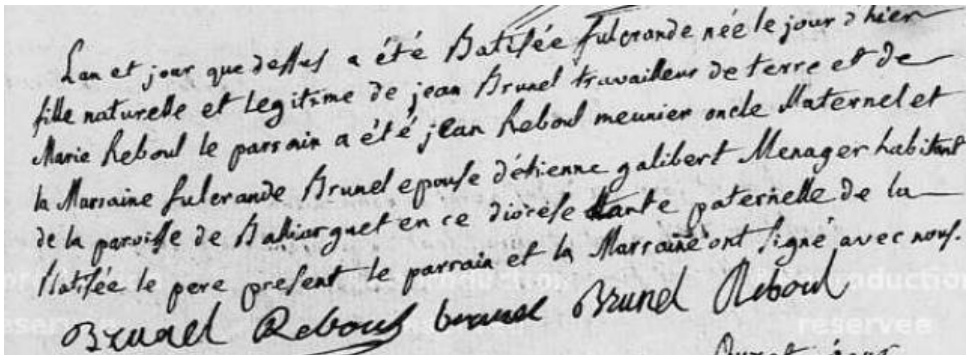 Lan et jour que dessus a été Batisée fulcrande née le jour d'hier
fille naturelle et Legitime de jean Brunel travailleur de terre et de
Marie Reboul le parrain a été jean Reboul meunier oncle Maternel et
la Marraine fulcrande Brunel epouse d'étienne galibert Menager habitant
de la paroisse de Baillarguet en ce diocese tante paternelle de la
Batisée le pere present le parrain et la Marraine ont signé avec nous.
Brunel Reboul brunel Brunel Reboul